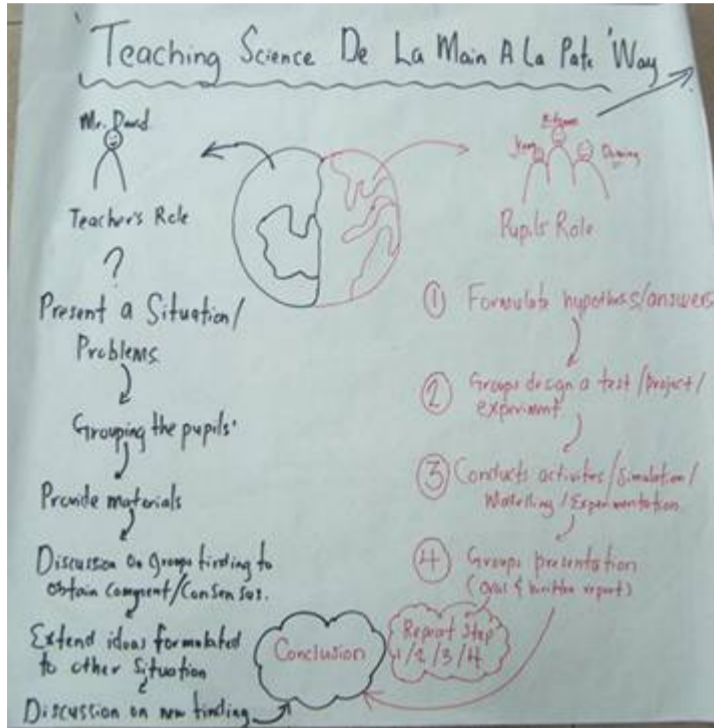 'Teaching Science De La Main A La Pate' Way
Mr. David
Teacher's Role
?
Present a Situation/
Problems
Grouping the pupils'
Provide materials
Discussion on groups finding to
obtain comment/Consensus.
Extend ideas formulated
to other Situation
Discussion on new finding
Pupils' Role
1 Formulate hypothesis/answers
2 Groups design a test/project/
experiment
3 Conducts activites/Simulation/
Modelling/Experimentation
4 Groups presentation
(oral & written report)
Conclusion
Repeat Step
1/2/3/4